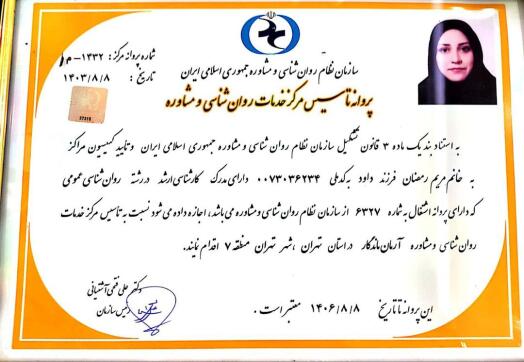 شماره پروانه مرکز: ۱۴۳۲-م۱
تاریخ : ۱۴۰۳/۸/۸
سازمان نظام روان شناسی و مشاوره جمهوری اسلامی ایران
پروانه تاسیس مرکز خدمات روان شناسی و مشاوره
به استناد بند یک ماده ۳ قانون تشکیل سازمان نظام روان شناسی و مشاوره جمهوری اسلامی ایران و تایید کمیسیون مراکز
به خانم مریم رمضان فرزند داود به کدملی ۰۰۷۳۰۳۶۲۳۴ دارای مدرک کارشناسی ارشد در رشته روان شناسی عمومی
که دارای پروانه اشتغال به شماره ۶۳۲۷ از سازمان نظام روان شناسی و مشاوره می باشد، اجازه داده می شود نسبت به تأسیس مرکز خدمات
روان شناسی و مشاوره آرمان ماندگار در استان تهران ،شهر تهران منطقه ۷ اقدام نمایند.
این پروانه تا تاریخ ۱۴۰۶/۸/۸ معتبر است .
دکتر علی فتحی آشتیانی
رئیس سازمان